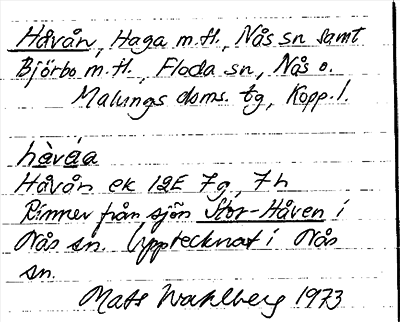 Håvån, Haga m.fl., Nås sn samt
Björbo m.fl., Floda sn, Nås o.
Malungs doms. tg, Kopp. l.
hàvåa
Håvån ek 12E 7g, 7h
Rinner från sjön Stor-Håven i
Nås sn. Upptecknat i Nås
sn.
Mats Wahlberg 1973